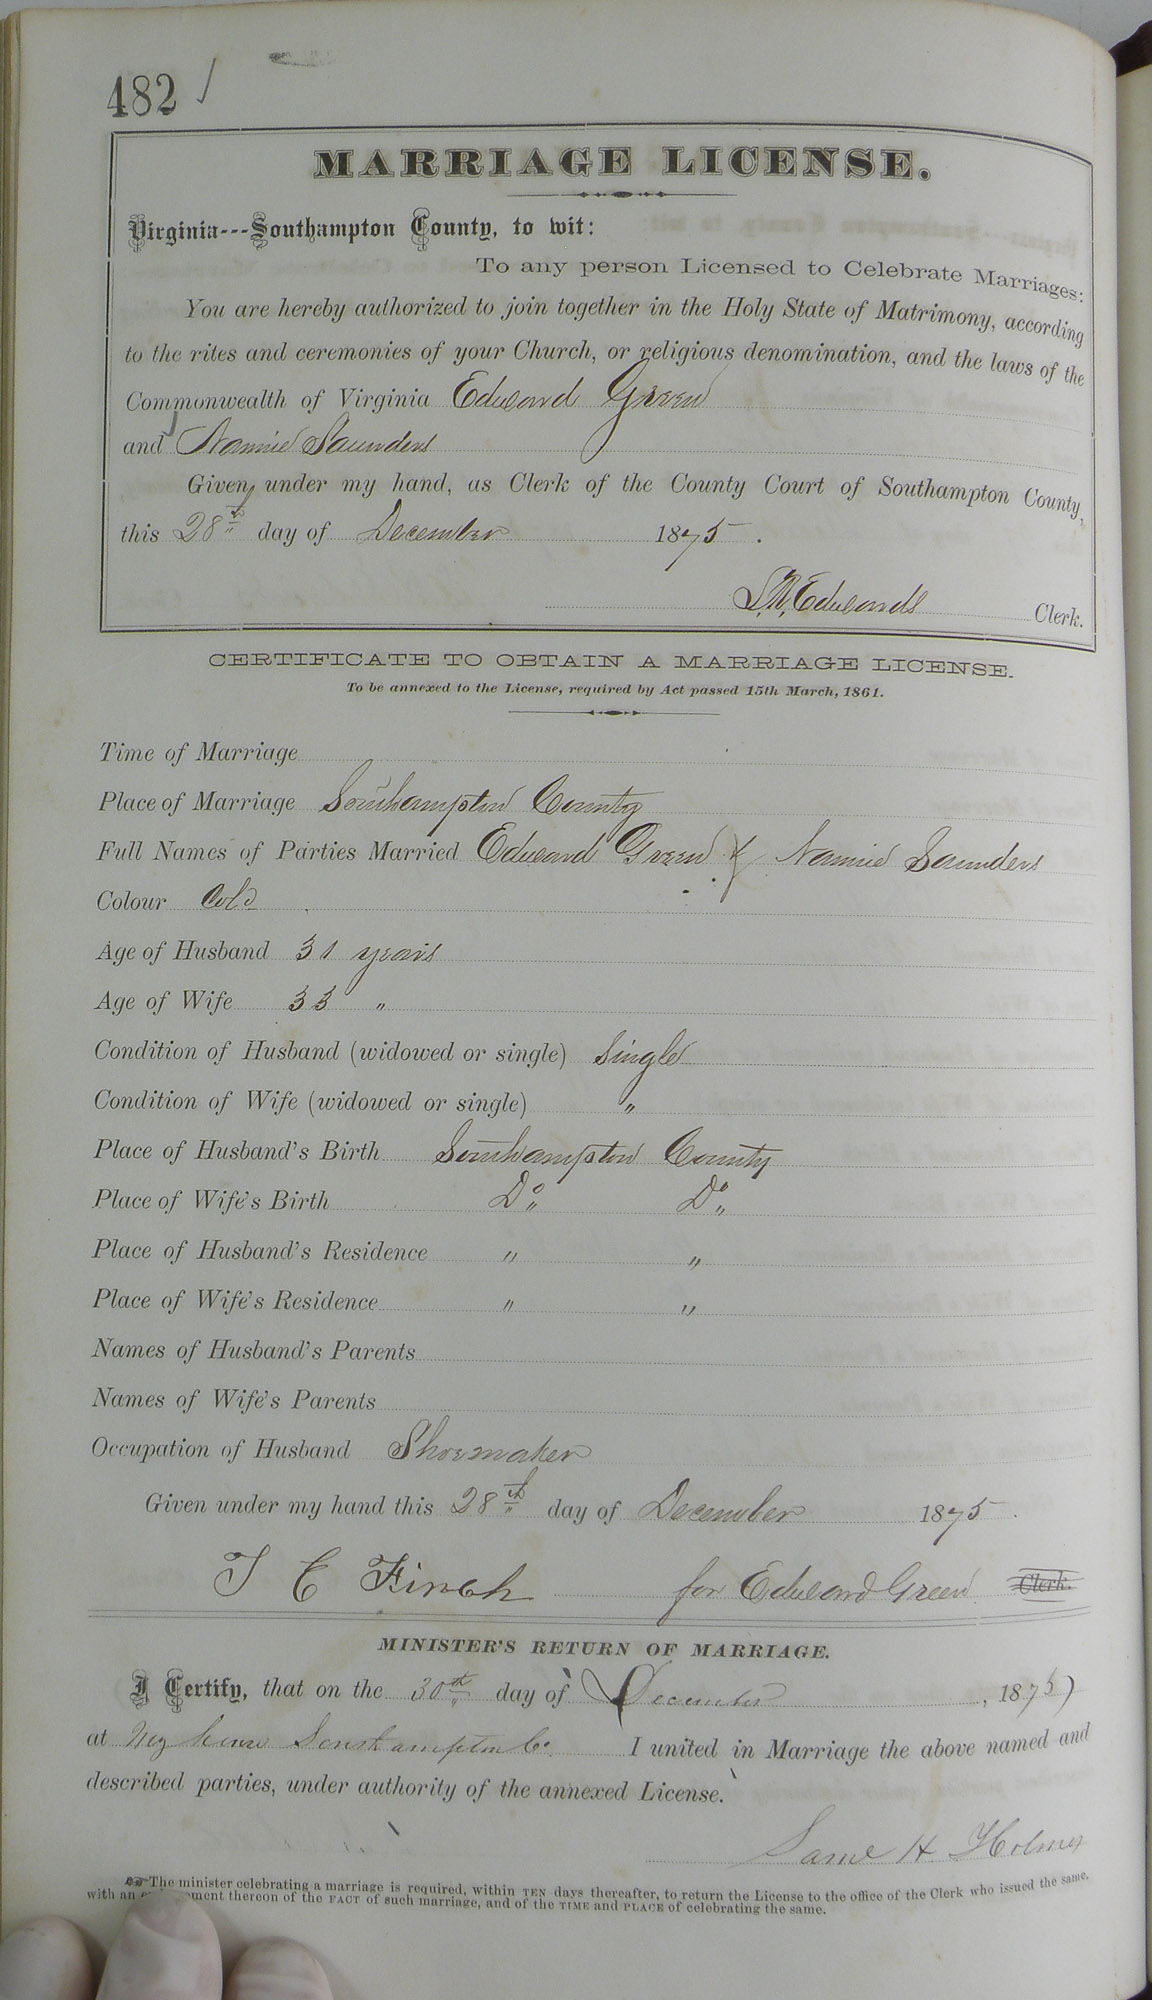 482
MARRIAGE LICENSE.
Virginia---Southampton County, to wit:
To any person Licensed to Celebrate Marriages:
You are hereby authorized to join together in the Holy State of Matrimony, according
to the rites and ceremonies of your Church, or religious denomination, and the laws of the
Commonwealth of Virginia Edward Green
and Nannie Saunders
Given under my hand, as Clerk of the County Court of Southampton County,
this 28th day of December 1875.
Edwards Clerk.
CERTIFICATE TO OBTAIN A MARRIAGE LICENSE.
To be annexed to the License, required by Act passed 15th March, 1861.
Time of Marriage
Place of Marriage Southampton County
Full Names of Parties Married Edward Green & Nannie Saunders
Colour Cold
Age of Husband 31 years
Age of Wife 33 "
Condition of Husband (widowed or single) Single
Condition of Wife (widowed or single) "
Place of Husband's Birth Southampton County
Place of Wife's Birth Do Do
Place of Husband's Residence " "
Place of Wife's Residence " "
Names of Husband's Parents
Names of Wife's Parents
Occupation of Husband Shoemaker
Given under my hand this 28th day of December 1875.
T C Finch for Edward Green Clerk.
MINISTER'S RETURN OF MARRIAGE.
I Certify, that on the 30th day of December, 1875
at my house Southampton Co. I united in Marriage the above named and
described parties, under authority of the annexed License.
Saml H Holmes
The minister celebrating a marriage is required, within TEN days thereafter, to return the License to the office of the Clerk who issued the same,
with an thereon of the FACT of such marriage, and of the TIME and PLACE of celebrating the same.